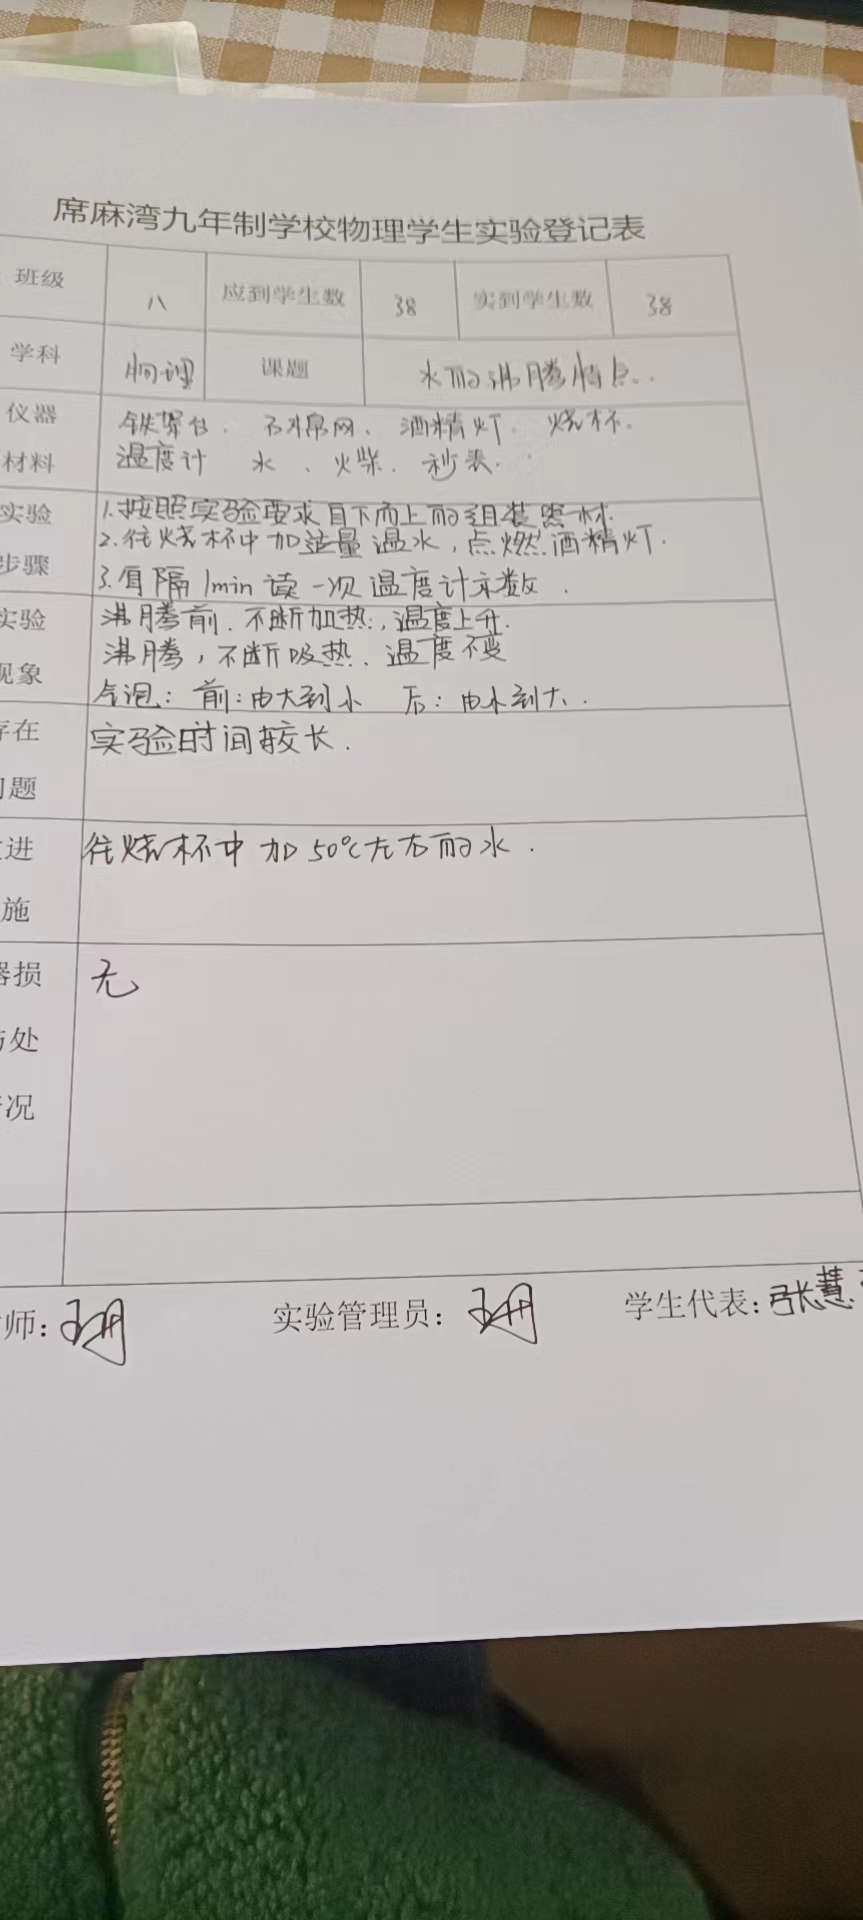 席麻湾九年制学校物理学生实验登记表
班级 八 应到学生数 38 实到学生数 38
学科 物理 课题 水的沸腾特点.
仪器 铁架台. 石棉网、酒精灯. 烧杯.
材料 温度计 水、火柴. 秒表.
实验 1.按照实验要求自下而上的组装器材.
2.往烧杯中加适量温水,点燃酒精灯.
步骤 3.每隔1min读一次温度计示数.
实验 沸腾前.不断加热,温度上升.
沸腾,不断吸热、温度不变
现象 气泡:前:由大到小 后:由小到大.
存在 实验时间较长.
问题
进 往烧杯中加50℃左右的水.
施
器损 无
与处
情况
师: 实验管理员: 学生代表:张慧